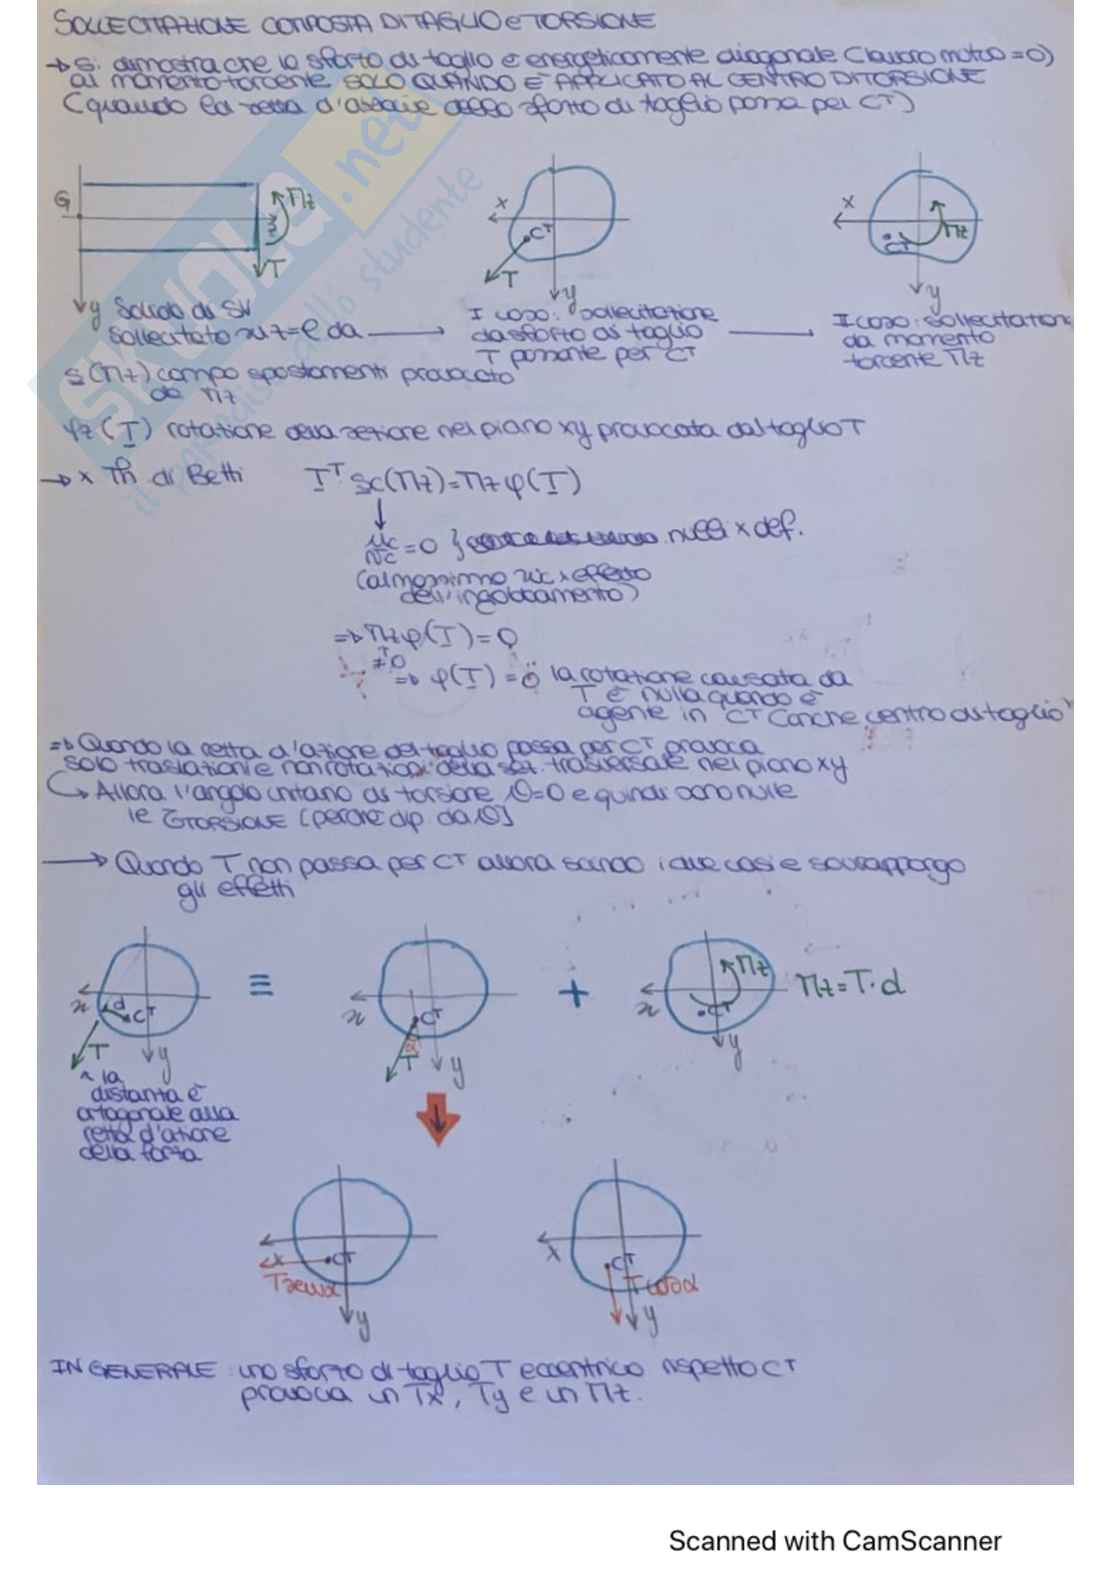 SOLLECITAZIONE COMPOSTA DI TAGLIO e TORSIONE
→ Si dimostra che lo sforto di taglio è energeticamente diagonale (lavoro mutuo = 0)
al momento torcente SOLO QUANDO E' APPLICATO AL CENTRO DI TORSIONE
(quando la retta d'azione dello sforto di taglio passa per CT)
G
Mz
T
y
x
CT
T
y
x
CT
Mz
y
Solido di SV
sollecitato su z=l da
I caso: sollecitazione
da sforto di taglio
T passante per CT
I caso: sollecitazione
da momento
torcente Mz
s(Mz) campo spostamenti provocato
da Mz
φz(T) rotazione della sezione nel piano xy provocata dal taglio T
→ x Th di Betti T^T sc(Mz)=Mz φ(T)
uc
vc =0 } nulli x def.
(al massimo wc x effetto
dell'ingobbamento)
⇒ Mz φ(T) = 0
≠0
⇒ φ(T) = 0 la rotazione causata da
T è nulla quando è
agente in CT (anche centro di taglio)
⇒ Quando la retta d'azione del taglio passa per CT provoca
solo traslazioni e non rotazioni della sez. trasversale nel piano xy
↳ Allora l'angolo unitario di torsione Θ=0 e quindi sono nulle
le τTORSIONE (perché dip da Θ)
→ Quando T non passa per CT allora scindo i due casi e sovrappongo
gli effetti
x
d
CT
T
y
≡
x
CT
T
y
+
x
Mz
CT
y
Mz = T·d
^ la
distanza è
ortogonale alla
retta d'azione
della forza
x
CT
Tsenα
y
x
CT
Tcosα
y
IN GENERALE: uno sforto di taglio T eccentrico rispetto CT
provoca un Tx, Ty e un Mz.
skuola.net
il paradiso dello studente
Scanned with CamScanner